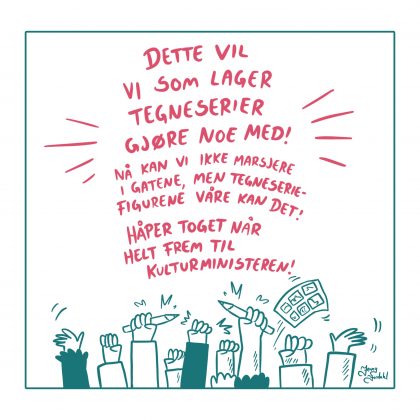 DETTE VIL
VI SOM LAGER
TEGNESERIER
GJØRE NOE MED!
NÅ KAN VI IKKE MARSJERE
I GATENE, MEN TEGNESERIE-
FIGURENE VÅRE KAN DET!
HÅPER TOGET NÅR
HELT FREM TIL
KULTURMINISTEREN!